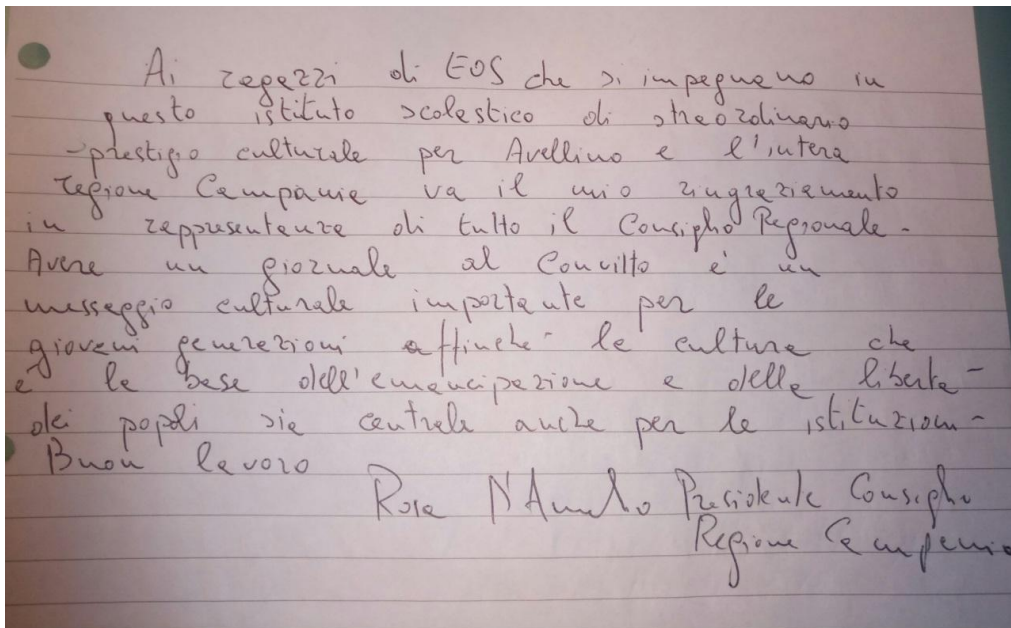 Ai ragazzi di EOS che si impegnano in
questo istituto scolastico di straordinario
prestigio culturale per Avellino e l'intera
regione Campania va il mio ringraziamento
in rappresentanza di tutto il Consiglio Regionale.
Avere un giornale al Convitto è un
messaggio culturale importante per le
giovani generazioni affinché la cultura che
è la base dell'emancipazione e della libertà
dei popoli sia centrale anche per le istituzioni.
Buon lavoro
Rosa D'Amelio Presidente Consiglio
Regione Campania